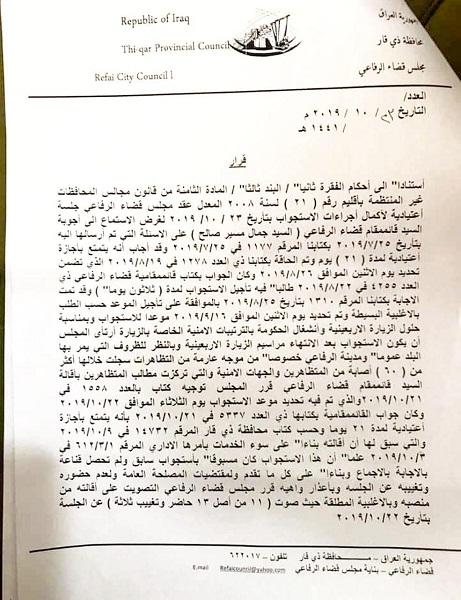 Republic of Iraq
Thi-qar Provincial Council
Refai City Council l
جمهورية العراق
محافظة ذي قار
مجلس قضاء الرفاعي
العدد/
التاريخ ٢٣/ ١٠ / ٢٠١٩ م
/ ١٤٤١ هـ
قرار
أستنادا" الى أحكام الفقرة ثانيا" / البند ثالثا" / المادة الثامنة من قانون مجالس المحافظات
غير المنتظمة بأقليم رقم ( ٢١ ) لسنة ٢٠٠٨ المعدل عقد مجلس قضاء الرفاعي جلسة
أعتيادية لأكمال أجراءات الاستجواب بتاريخ ٢٣ / ١٠ / ٢٠١٩ لغرض الاستماع الى أجوبة
السيد قائممقام قضاء الرفاعي ( السيد جمال مسير صالح ) على الاسئلة التي تم أرسالها اليه
بتاريخ ٢٠١٩/٧/٢٥ بكتابنا المرقم ١١٧٧ في ٢٠١٩/٧/٢٥ وقد أجاب أنه يتمتع بأجازة
أعتيادية لمدة ( ٢١ ) يوم وتم الحاقة بكتابنا ذي العدد ١٢٧٨ في ٢٠١٩/٨/١٩ الذي تضمن
تحديد يوم الاثنين الموافق ٢٠١٩/٨/٢٦ وكان الجواب بكتاب قائممقامية قضاء الرفاعي ذي
العدد ٤٢٥٥ في ٢٠١٩/٨/٢٢ طالبا" فيه تأجيل الاستجواب لمدة ( ثلاثون يوما" ) وقد تمت
الاجابة بكتابنا المرقم ١٣١٠ بتاريخ ٢٠١٩/٨/٢٥ بالموافقة على تأجيل الموعد حسب الطلب
بالاغلبية البسيطة وتم تحديد يوم الاثنين الموافق ٢٠١٩/٩/١٦ موعدا للاستجواب وبمناسبة
حلول الزيارة الاربعينية وأنشغال الحكومة بالترتيبات الامنية الخاصة بالزيارة أرتأى المجلس
أن يكون الاستجواب بعد الانتهاء مراسيم الزيارة الاربعينية وبالنظر للظروف التي يمر بها
البلد عموما" ومدينة الرفاعي خصوصا" من موجه عارمة من التظاهرات سجلت خلالها أكثر
من ( ٦٠ ) أصابة من المتظاهرين والجهات الامنية والتي تركزت مطالب المتظاهرين بأقالة
السيد قائممقام قضاء الرفاعي قرر المجلس توجيه كتاب بالعدد ١٥٥٨ في
٢٠١٩/١٠/٢١ والذي تم فيه تحديد موعد الاستجواب يوم الثلاثاء الموافق ٢٠١٩/١٠/٢٢
وكان جواب القائممقامية بكتابها ذي العدد ٥٣٣٧ في ٢٠١٩/١٠/٢١ بأنه يتمتع بأجازة
أعتيادية لمدة ٢١ يوما وحسب كتاب محافظة ذي قار المرقم ١٤٧٣٢ في ٢٠١٩/١٠/٩
والتي سبق لها أن أقالته بناء" على سوء الخدمات بأمرها الاداري المرقم ٦١٢/٣/١ في
٢٠١٩/١٠/٣ علما" أن هذا الاستجواب كان مسبوقا" بأستجواب سابق ولم تحصل قناعة
بالاجابة بالاجماع وبناء" على كل ما تقدم ولمقتضيات المصلحة العامة ولعدم حضوره
وتغيبه عن الجلسه وبأعذار واهيه قرر مجلس قضاء الرفاعي التصويت على أقالته من
منصبه وبالاغلبية المطلقة حيث صوت ( ١١ من أصل ١٣ حاضر وتغيب ثلاثة ) عن الجلسة
بتاريخ ٢٠١٩/١٠/٢٢
جمهورية العراق – محافظة ذي قار تلفون – ٦٢٢٠١٧
قضاء الرفاعي – بناية مجلس قضاء الرفاعي Refaicouncil@yahoo.com E.mail